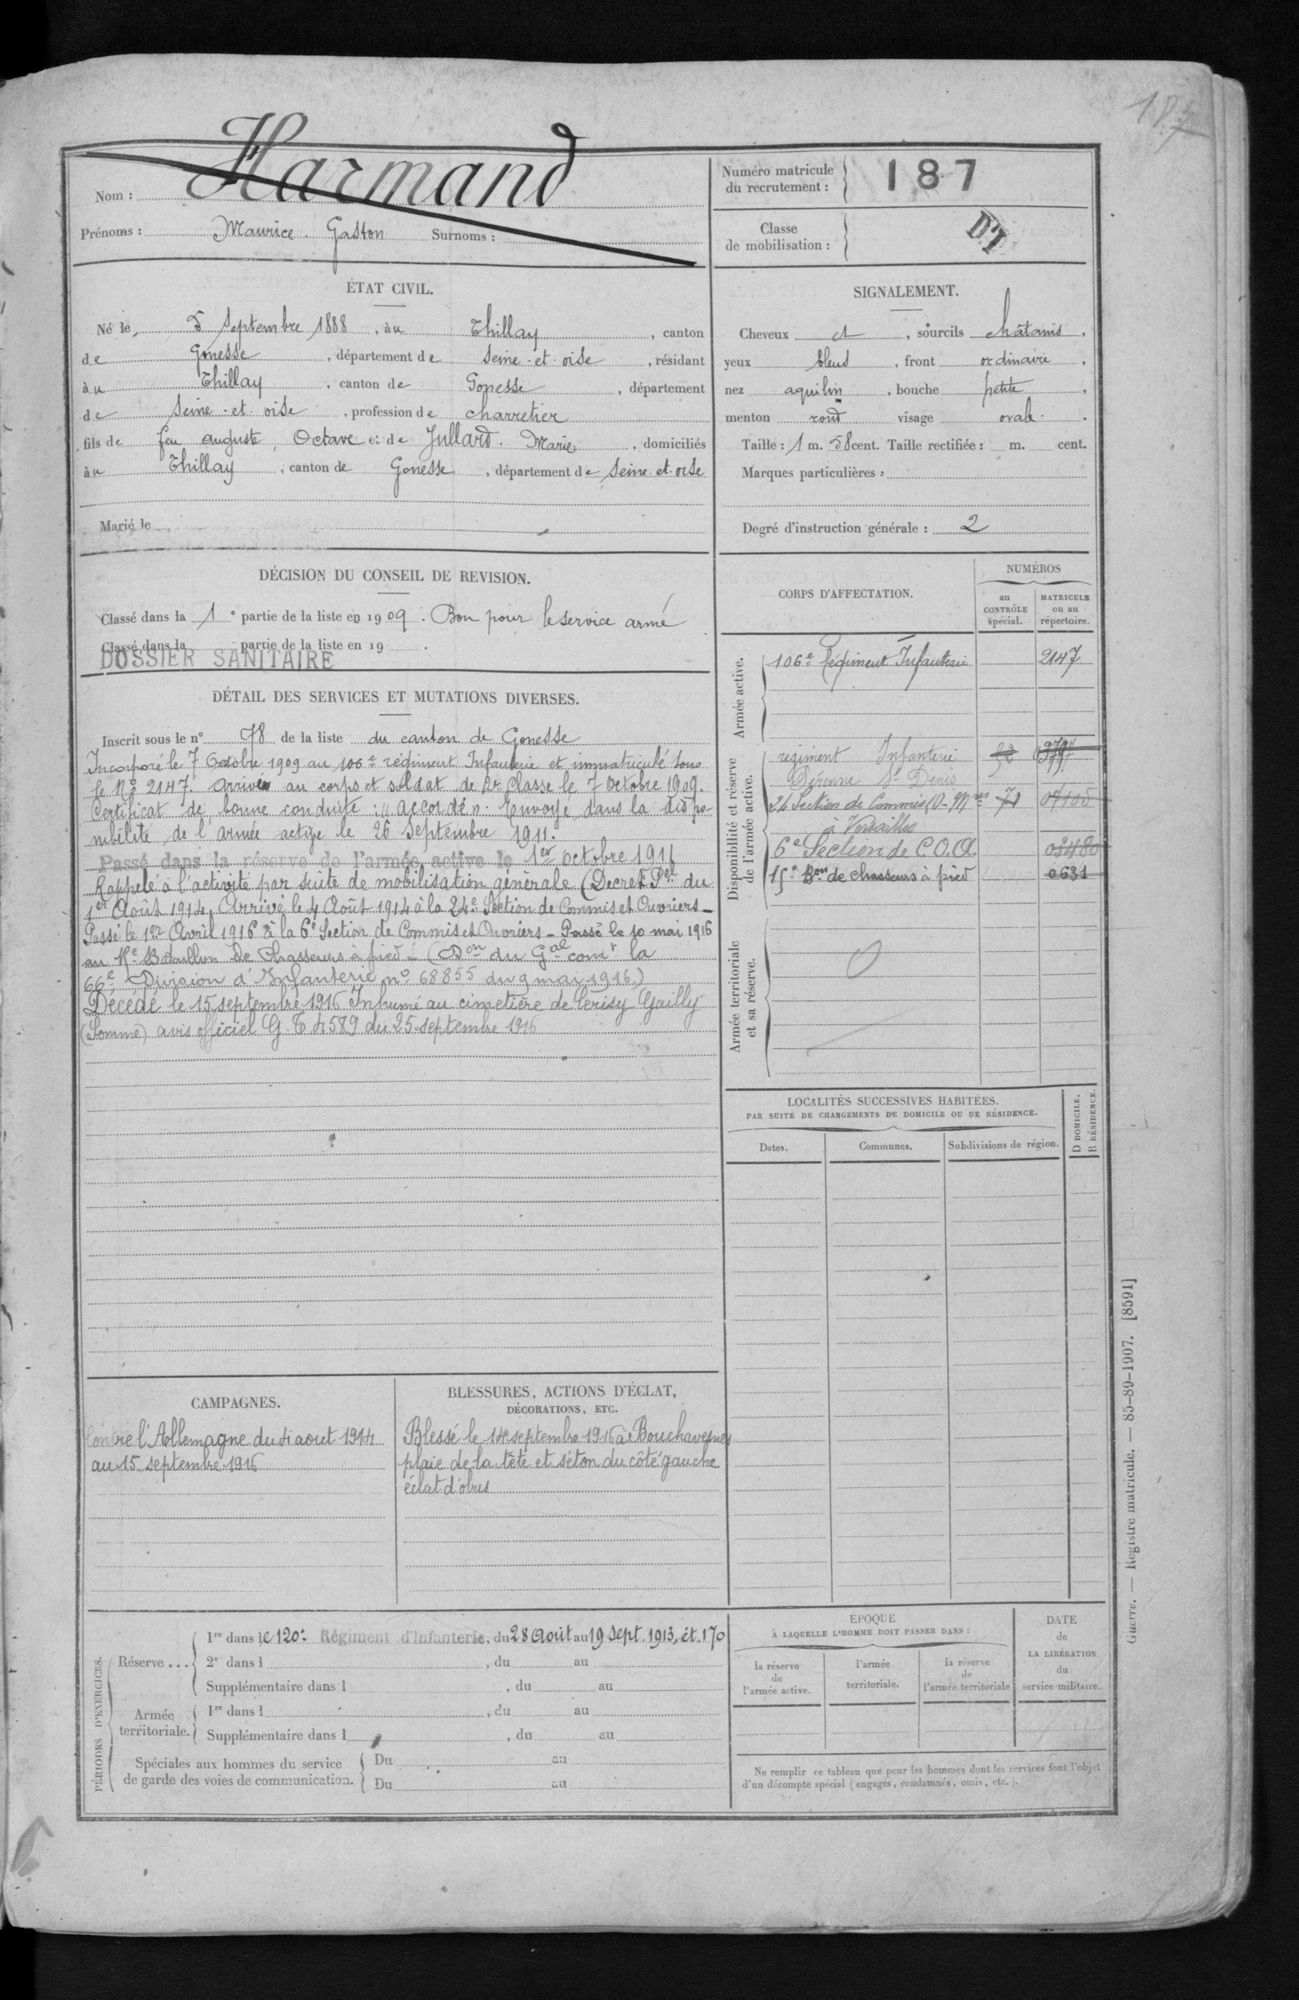 187
Nom : Harmand
Prénoms : Maurice Gaston Surnoms :
Numéro matricule du recrutement : 187
Classe de mobilisation :
ÉTAT CIVIL.
Né le 5 Septembre 1888, à u Thillay, canton
de Gonesse, département de Seine-et-oise, résidant
à u Thillay, canton de Gonesse, département
de Seine-et-oise, profession de charretier
fils de feu auguste Octave et de Jullard Marie, domiciliés
à u Thillay, canton de Gonesse, département de Seine-et-oise
Marié le
SIGNALEMENT.
Cheveux et, sourcils châtains,
yeux bleus, front ordinaire,
nez aquilin, bouche petite,
menton rond visage ovale.
Taille : 1 m. 58 cent. Taille rectifiée : m. cent.
Marques particulières :
Degré d'instruction générale : 2
DÉCISION DU CONSEIL DE REVISION.
Classé dans la 1e partie de la liste en 1909. Bon pour le service armé
Classé dans la partie de la liste en 19 .
DOSSIER SANITAIRE
DÉTAIL DES SERVICES ET MUTATIONS DIVERSES.
Inscrit sous le n° 78 de la liste du canton de Gonesse
Incorporé le 7 Octobre 1909 au 106e régiment Infanterie et immatriculé sous
le No 2147. arrivé au corps et soldat de 2e classe le 7 Octobre 1909.
Certificat de bonne conduite : "accordé". Envoyé dans la dispo-
nibilité de l'armée active le 26 Septembre 1911.
Passé dans la réserve de l'armée active le 1er octobre 1911
Rappelé à l'activité par suite de mobilisation générale (Décret Pel du
1er Août 1914. Arrivé le 4 Août 1914 à la 24e Section de Commis et Ouvriers_
Passé le 1er Avril 1916 à la 6e Section de Commis et Ouvriers - Passé le 10 mai 1916
au Bataillon De Chasseurs à pied - (Don du Gal comt la
66e Division d'Infanterie no 68855 du 9 mai 1916.)
Décédé le 15 septembre 1916 Inhumé au cimetière de Cerisy Gailly
(Somme) avis officiel G.T. 4589 du 25 septembre 1916
CORPS D'AFFECTATION.
NUMÉROS
au CONTRÔLE spécial.
MATRICULE ou au répertoire.
Armée active.
106e Régiment Infanterie 2147
Disponibilité et réserve de l'armée active.
régiment Infanterie 52
St Denis
24 Section de Commis 71
à Versailles
6e Section de C.O.A.
15e Bon de chasseurs à pied 0631
Armée territoriale et sa réserve.
LOCALITÉS SUCCESSIVES HABITÉES.
PAR SUITE DE CHANGEMENTS DE DOMICILE OU DE RÉSIDENCE.
Dates.
Communes.
Subdivisions de région.
D DOMICILE.
R RÉSIDENCE.
CAMPAGNES.
Contre l'Allemagne du 4 aout 1914
au 15 septembre 1916
BLESSURES, ACTIONS D'ÉCLAT,
DÉCORATIONS, ETC.
Blessé le 14 septembre 1916 à Bouchavesnes
plaie de la tête et séton du côté gauche
éclat d'obus
PÉRIODES D'EXERCICES.
Réserve ...
1re dans le 120e Régiment d'Infanterie, du 28 Août au 19 Sept. 1913, ét. 170
2e dans l , du au
Supplémentaire dans l , du au
Armée territoriale.
1re dans l , du au
Supplémentaire dans l , du au
Spéciales aux hommes du service
de garde des voies de communication.
Du au
Du au
ÉPOQUE
À LAQUELLE L'HOMME DOIT PASSER DANS :
la réserve de l'armée active.
l'armée territoriale.
la réserve de l'armée territoriale
DATE de LA LIBÉRATION du service militaire.
Ne remplir ce tableau que pour les hommes dont les services font l'objet
d'un décompte spécial (engagés, condamnés, omis, etc.).
Guerre. — Registre matricule. — 85-89-1907. [8591]